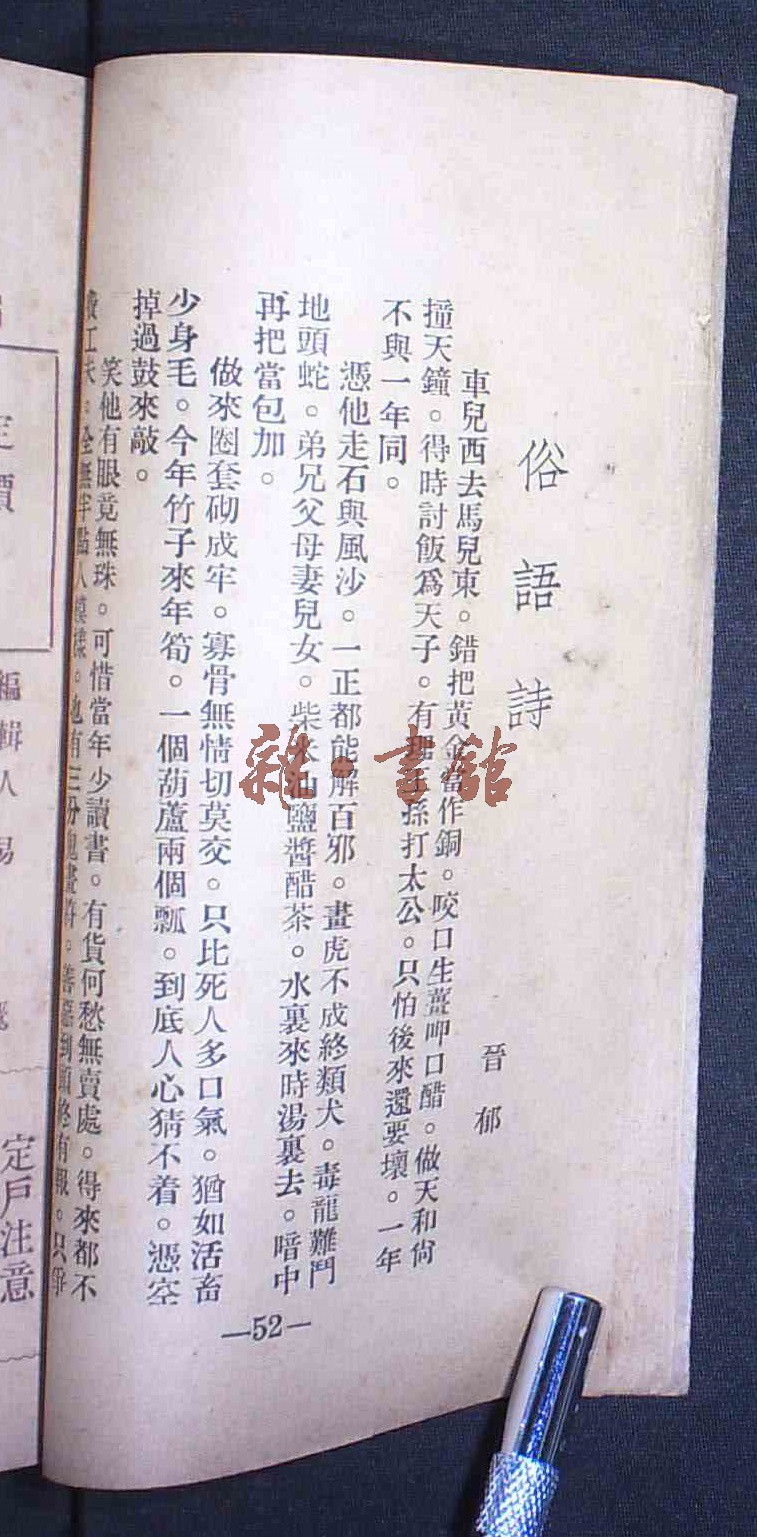 俗語詩
晉郁
車兒西去馬兒東。錯把黃金當作銅。咬口生薑呷口醋。做天和尙
撞天鐘。得時討飯爲天子。有理子孫打太公。只怕後來還要壞。一年
不與一年同。
憑他走石與風沙。一正都能解百邪。畫虎不成終類犬。毒龍難鬥
地頭蛇。弟兄父母妻兒女。柴米油鹽醬醋茶。水裏來時湯裏去。暗中
再把當包加。
做來圈套砌成牢。寡骨無情切莫交。只比死人多口氣。猶如活畜
少身毛。今年竹子來年筍。一個葫蘆兩個瓢。到底人心猜不着。憑空
掉過鼓來敲。
笑他有眼竟無珠。可惜當年少讀書。有貨何愁無賣處。得來都不
工夫。全無半點人模樣。也有三分鬼畫符。善惡到頭終有報。只爭
—52—
雜·書館
定價
編輯人
定戶注意